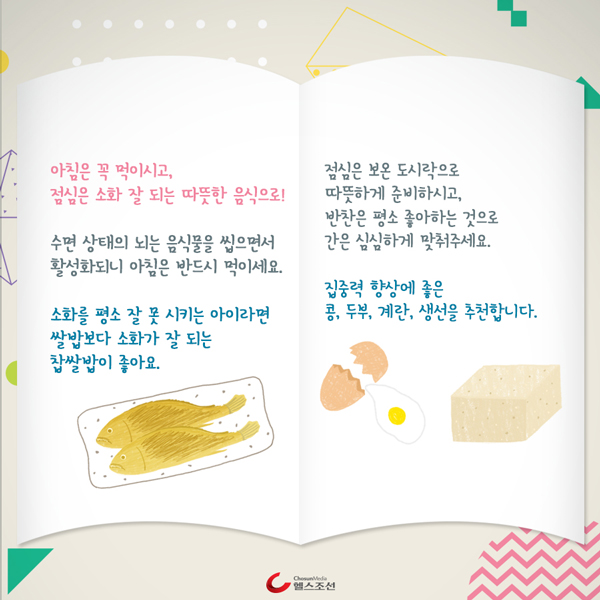 아침은 꼭 먹이시고,
점심은 소화 잘 되는 따뜻한 음식으로!
수면 상태의 뇌는 음식물을 씹으면서
활성화되니 아침은 반드시 먹이세요.
소화를 평소 잘 못 시키는 아이라면
쌀밥보다 소화가 잘 되는
찹쌀밥이 좋아요.
점심은 보온 도시락으로
따뜻하게 준비하시고,
반찬은 평소 좋아하는 것으로
간은 심심하게 맞춰주세요.
집중력 향상에 좋은
콩, 두부, 계란, 생선을 추천합니다.
ChosunMedia
헬스조선